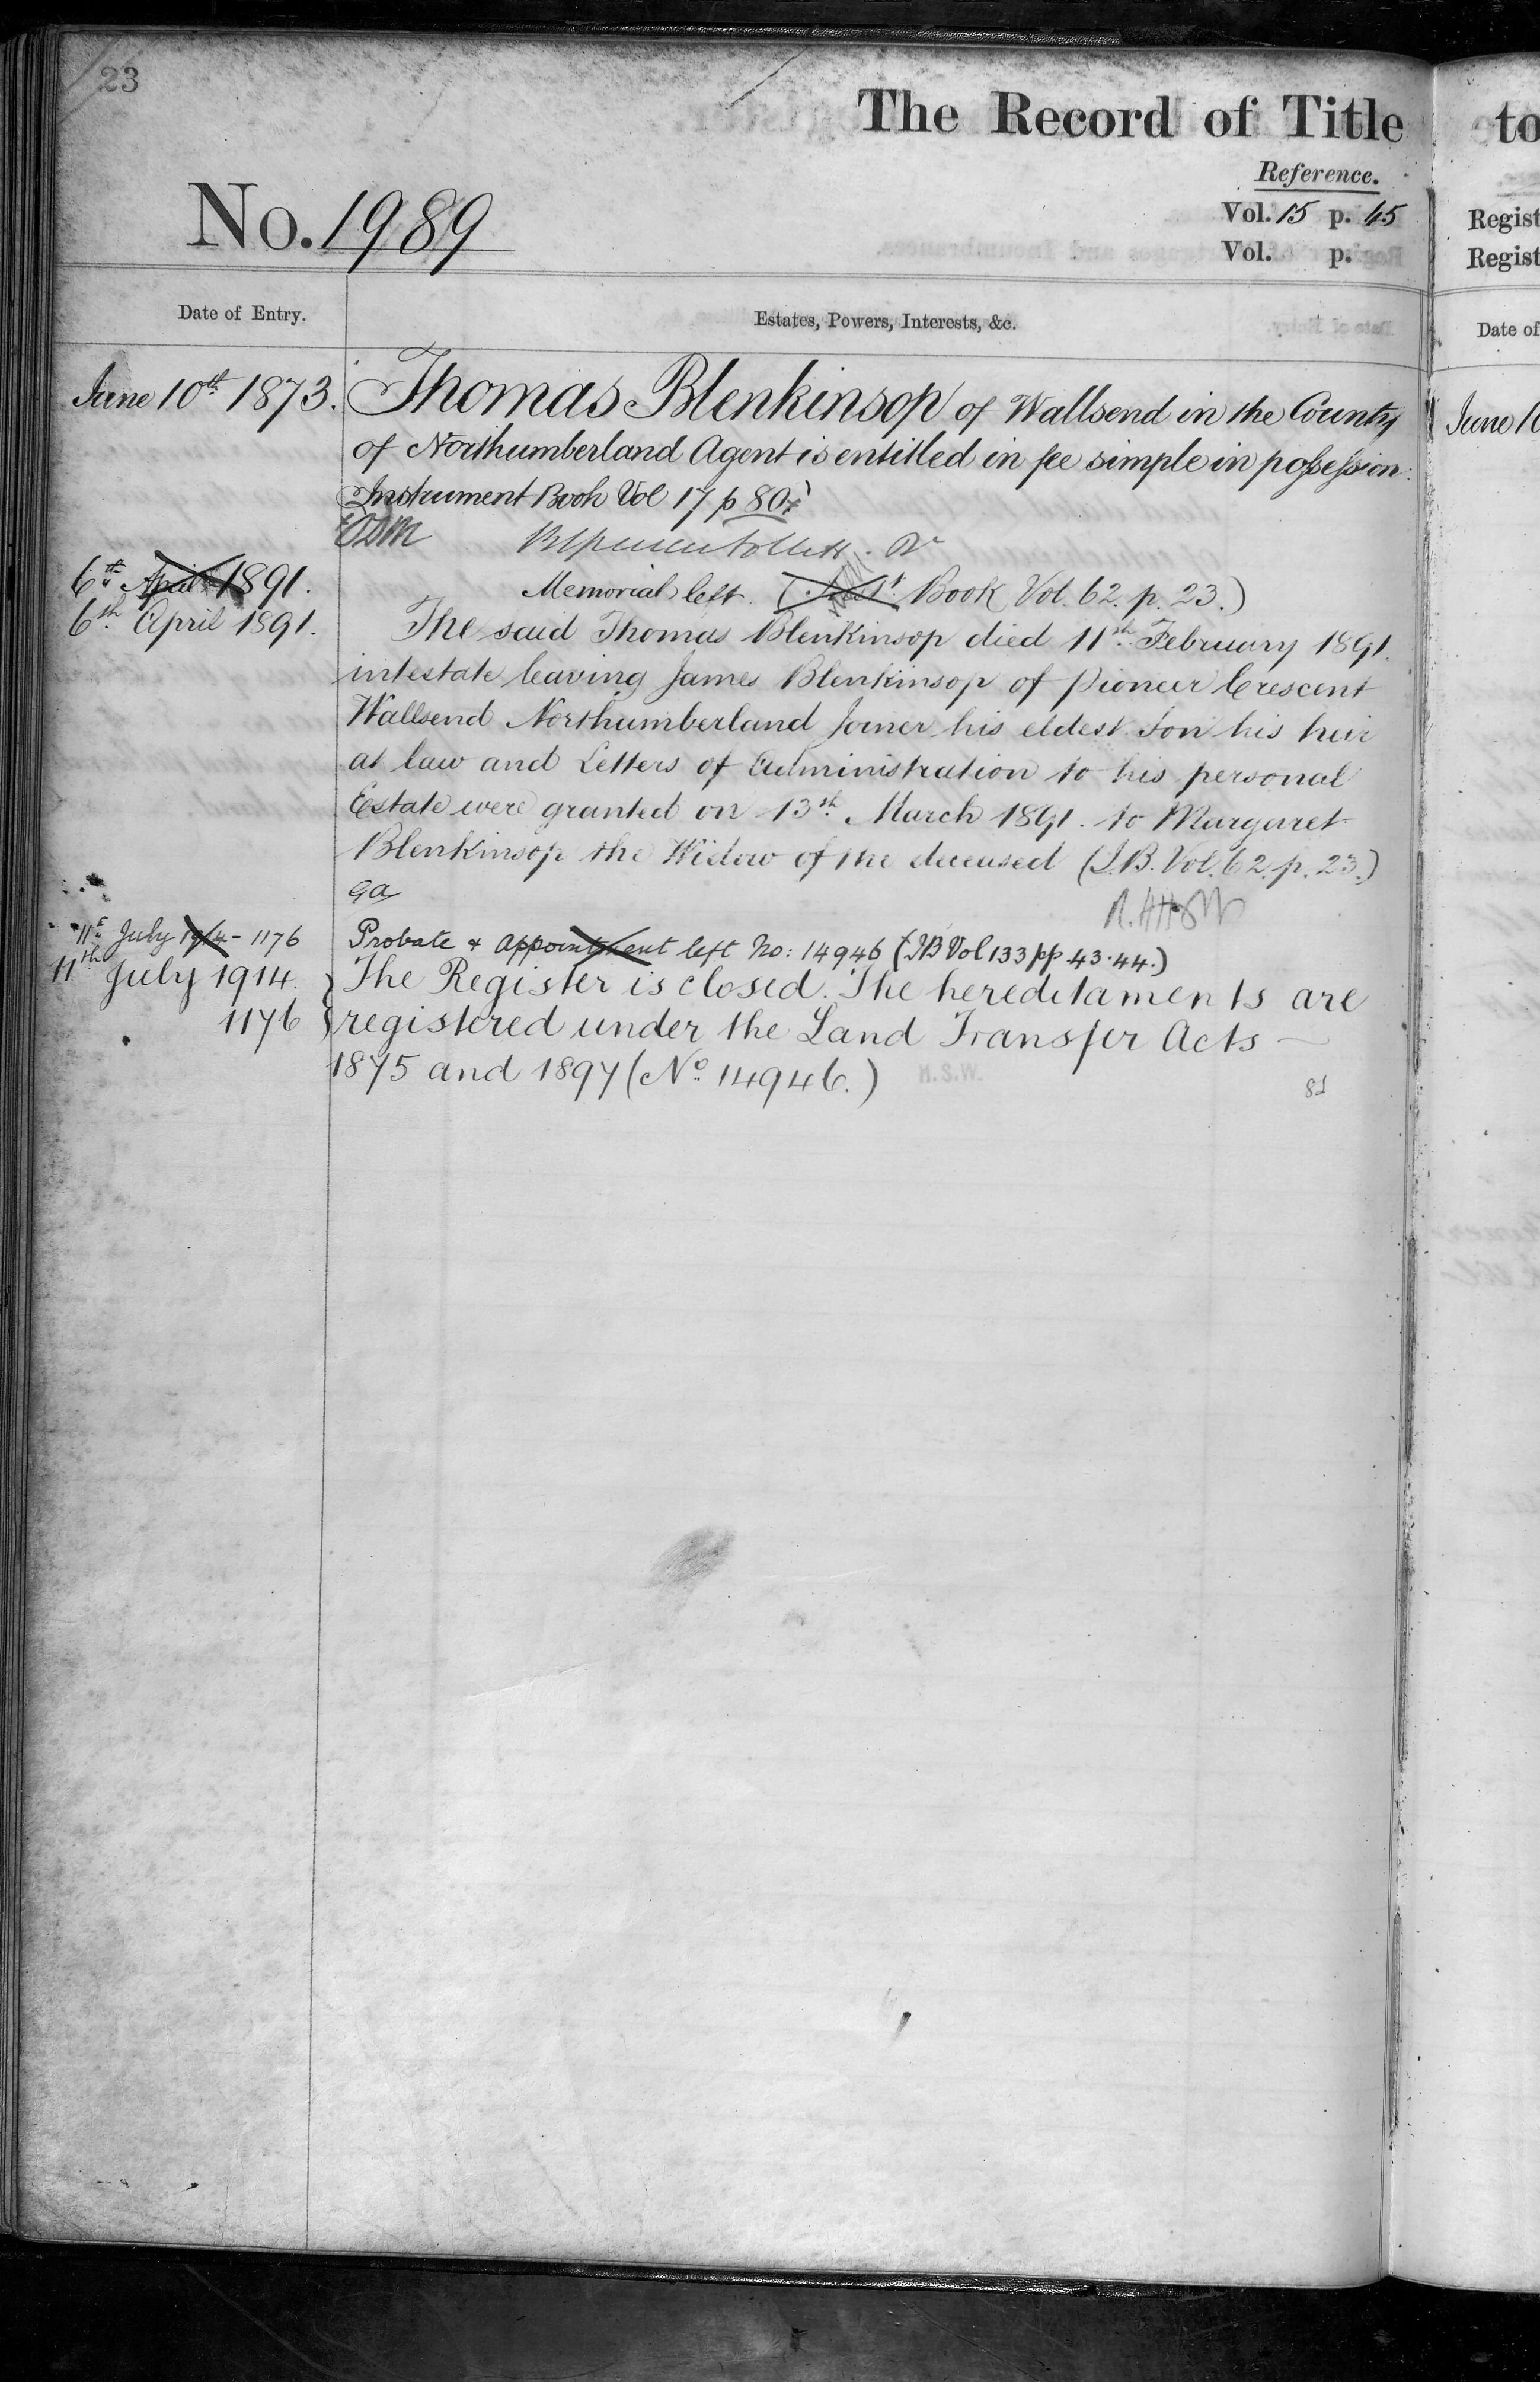 23
The Record of Title
Reference.
No. 1989
Vol. 15 p. 45
Vol. p.
Date of Entry.
Estates, Powers, Interests, &c.
June 10th 1873.
Thomas Blenkinsop of Wallsend in the County
of Northumberland Agent is entitled in fee simple in possession.
Instrument Book Vol 17 p 80
6th April 1891.
Memorial left. (Inst. Book Vol. 62. p. 23.)
6th April 1891.
The said Thomas Blenkinsop died 11th February 1891.
intestate leaving James Blenkinsop of Pioneer Crescent
Wallsend Northumberland Joiner his eldest Son his heir
at law and Letters of Administration to his personal
Estate were granted on 13th March 1891. to Margaret
Blenkinsop the Widow of the deceased (I.B. Vol. 62. p. 23.)
11th July 1914 - 1176
Probate & appointment left No: 14946 (IB Vol 133 pp 43.44.)
11th July 1914.
1176
The Register is closed. The hereditaments are
registered under the Land Transfer Acts
1875 and 1897 (No. 14946.)
H.S.W.
to
Regist
Regist
Date of
June 1